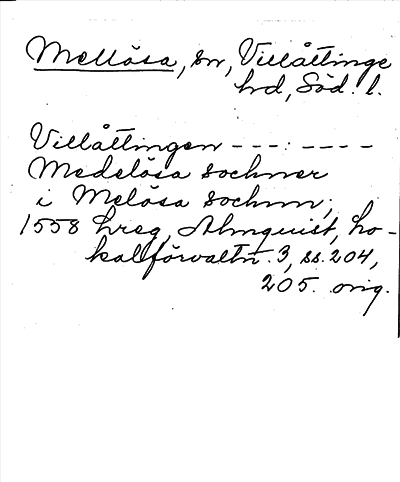 Mellösa, sn, Villåttinge
hd, Söd. l.
Villåttingen - - - : - - - -
Medelösa sochner
i Melösa sochnn;
1558 hreg, Almquist, Lo-
kalförvaltn. 3, ss. 204,
205. orig.